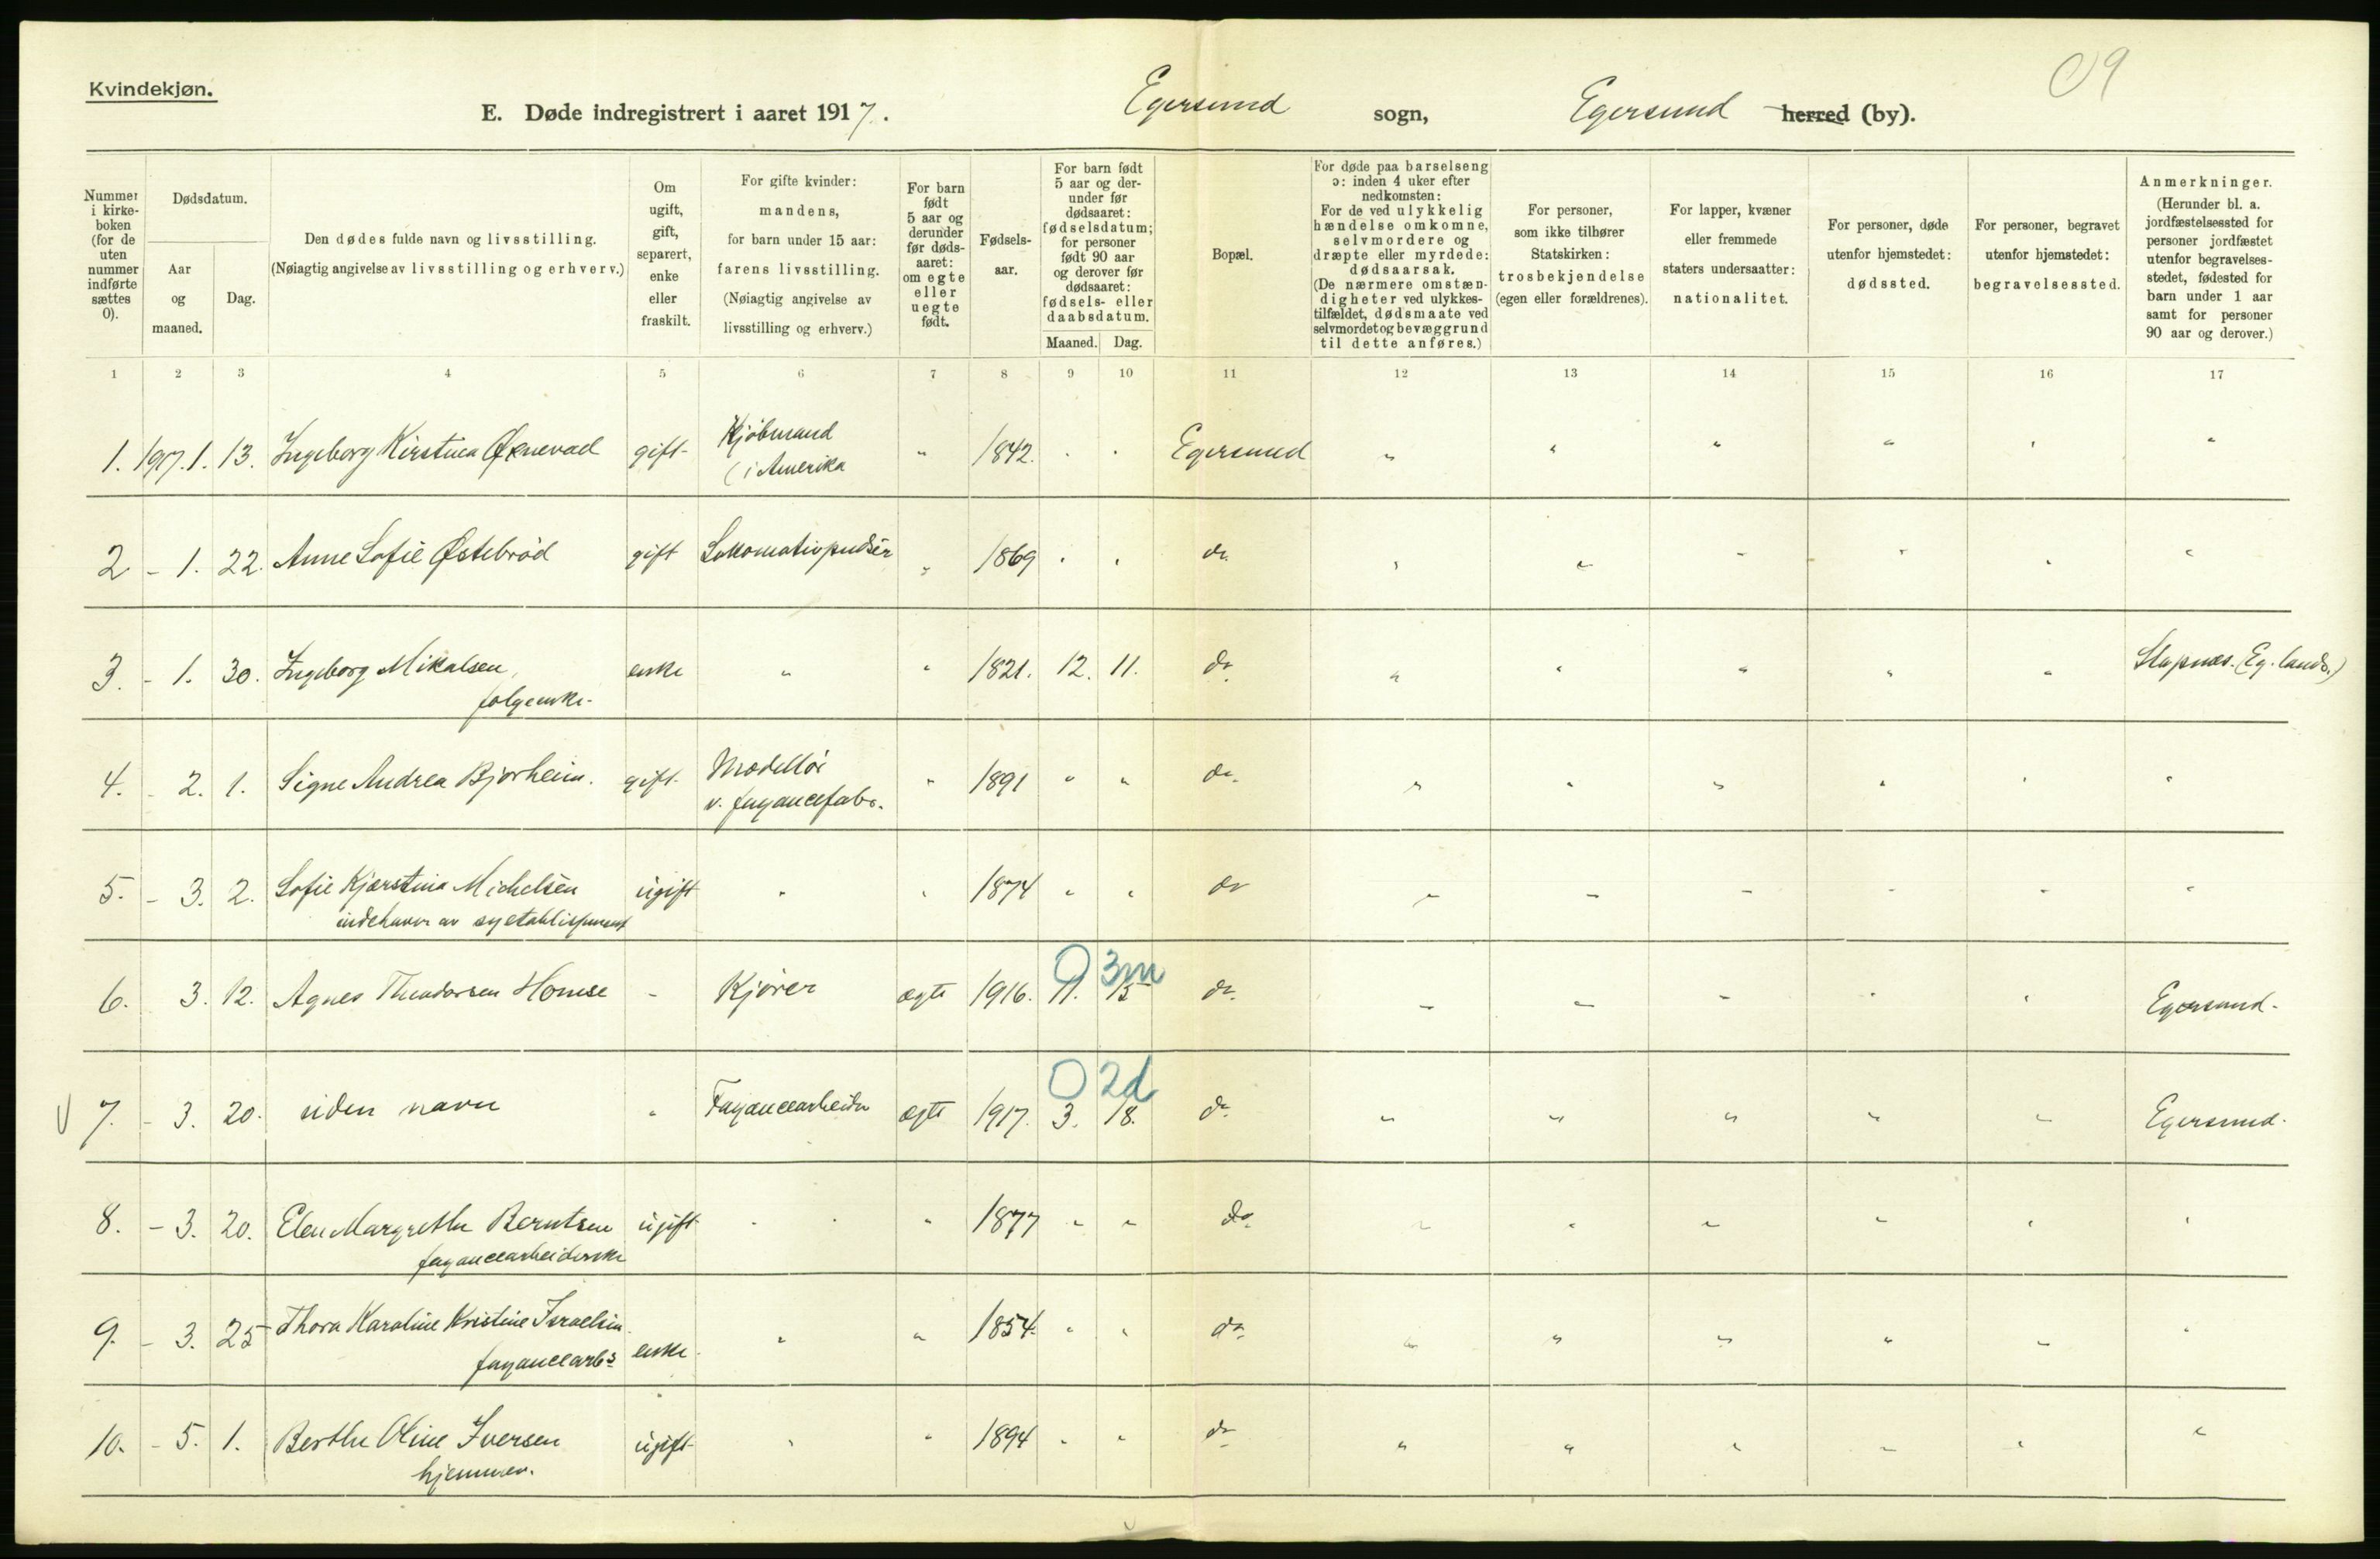 Kvindekjøn.
E. Døde indregistrert i aaret 1917.
Egersund sogn, Egersund herred (by).
Nummer i kirkeboken (for de uten nummer indførte sættes 0).
Dødsdatum.
Aar og maaned.
Dag.
Den dødes fulde navn og livsstilling.
(Nøiagtig angivelse av livsstilling og erhverv.)
Om ugift, gift, separert, enke eller fraskilt.
For gifte kvinder: mandens, for barn under 15 aar: farens livsstilling. (Nøiagtig angivelse av livsstilling og erhverv.)
For barn født 5 aar og derunder før dødsaaret: om egte eller uegte født.
Fødselsaar.
For barn født 5 aar og derunder før dødsaaret: fødselsdatum; for personer født 90 aar og derover før dødsaaret: fødsels- eller daabsdatum.
Maaned. Dag.
Bopæl.
For døde paa barselseng ɔ: inden 4 uker efter nedkomsten: For de ved ulykkelig hændelse omkomne, selvmordere og dræpte eller myrdede: dødsaarsak. (De nærmere omstændigheter ved ulykkestilfældet, dødsmaate ved selvmordet og bevæggrund til dette anføres.)
For personer, som ikke tilhører Statskirken: trosbekjendelse (egen eller forældrenes).
For lapper, kvæner eller fremmede staters undersaatter: nationalitet.
For personer, døde utenfor hjemstedet: dødssted.
For personer, begravet utenfor hjemstedet: begravelsessted.
Anmerkninger. (Herunder bl. a. jordfæstelsessted for personer jordfæstet utenfor begravelsesstedet, fødested for barn under 1 aar samt for personer 90 aar og derover.)
1 2 3 4 5 6 7 8 9 10 11 12 13 14 15 16 17
1. 1917. 1. 13. Ingeborg Kirstina Øxnevad gift Kjøbmand " 1842. Egersund
(i Amerika
2 - 1. 22. Anne Sofie Østebrød gift Lokomotivpudser " 1869 do.
3. - 1. 30. Ingeborg Mikalsen, enke " " 1821. 12. 11. do. Slapnes. (Eg. lands.)
følgeenke.
4. - 2. 1. Signe Andrea Bjorheim. gift Modellør " 1891 " " do.
v. fayancefabr.
5. - 3. 2. Sofie Kjerstina Michelsen ugift " " 1874 " " do
indehaver av syetablissement
0 3m
6. 3. 12. Agnes Theodorsen Homse - Kjører egte 1916. 11. 15 do. Egersund.
0 2d
7. - 3. 20. uden navn " Fayancearbeider egte 1917. 3. 18. do. Egersund.
8. - 3. 20. Elen Margrethe Berntsen ugift " " 1877 " " do.
fayancearbeiderske
9. - 3. 25 Thora Karoline Kristine Israelsen enke " " 1854. " " do.
fayancearbs
10. - 5. 1. Berthe Oline Iversen ugift " " 1894 " " do
hjemmev.